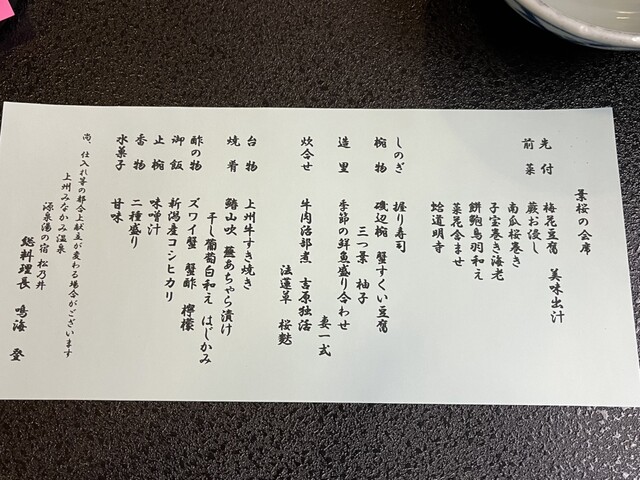 葉桜の会席
先付 梅花豆腐 美味出汁
前菜 蕨お浸し
南瓜桜巻き
子宝巻き海老
餅鮑鳥羽和え
菜花含ませ
蛤道明寺
しのぎ 握り寿司
椀物 磯辺椀 蟹すくい豆腐
三つ葉 柚子
造里 季節の鮮魚盛り合わせ
妻一式
炊合せ 牛肉沼部煮 吉原独活
法蓮草 桜麩
台物 上州牛すき焼き
焼肴 鰆山吹 蕪あちゃら漬け
干し葡萄白和え はじかみ
酢の物 ズワイ蟹 蟹酢 檸檬
御飯 新潟産コシヒカリ
止椀 味噌汁
香物 二種盛り
水菓子 甘味
尚、仕入れ等の都合上献立が変わる場合がございます
上州みなかみ温泉
源泉湯の宿 松乃井
総料理長 鳴海 登